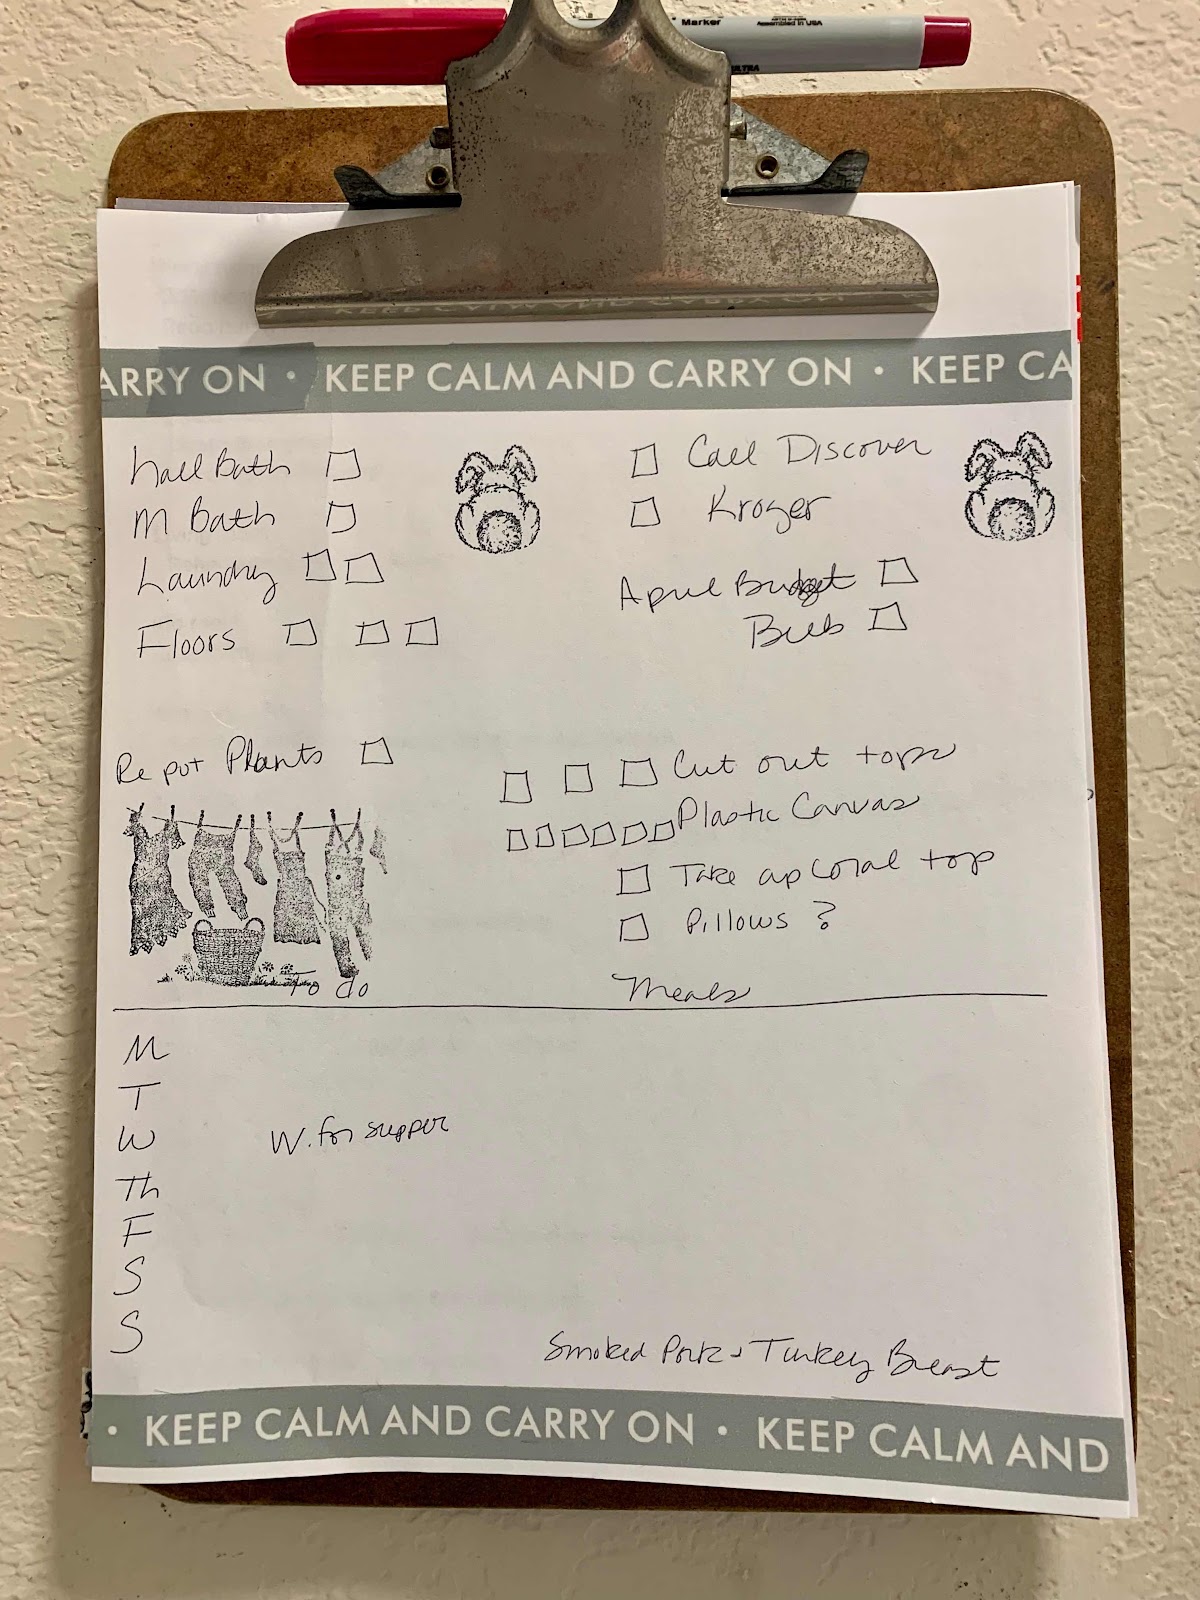 Marker
Assembled in USA
ULTRA
KEEP CALM AND CARRY ON
ARRY ON • KEEP CALM AND CARRY ON • KEEP CA
hall Bath
Call Discover
M Bath
Kroger
Laundry
April Budget
Floors
Bills
Repot Plants
Cut out tops
Plastic Canvas
Take up Coral top
Pillows ?
To do
Meals
M
T
W W. for supper
Th
F
S
S
Smoked Pork & Turkey Breast
• KEEP CALM AND CARRY ON • KEEP CALM AND